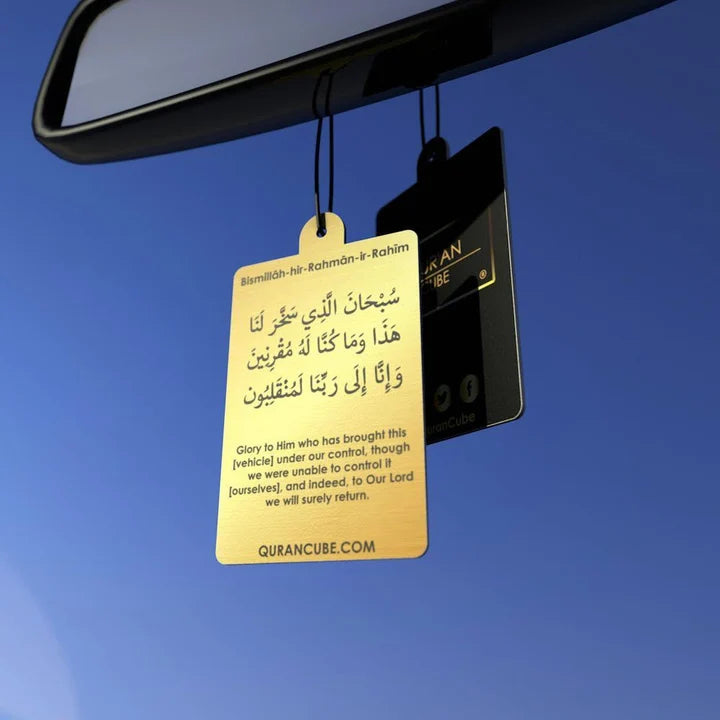 Bismillâh-hir-Rahmân-ir-Rahîm
سُبْحَانَ الَّذِي سَخَّرَ لَنَا
هَذَا وَمَا كُنَّا لَهُ مُقْرِنِينَ
وَإِنَّا إِلَى رَبِّنَا لَمُنْقَلِبُون
Glory to Him who has brought this
[vehicle] under our control, though
we were unable to control it
[ourselves], and indeed, to Our Lord
we will surely return.
QURANCUBE.COM